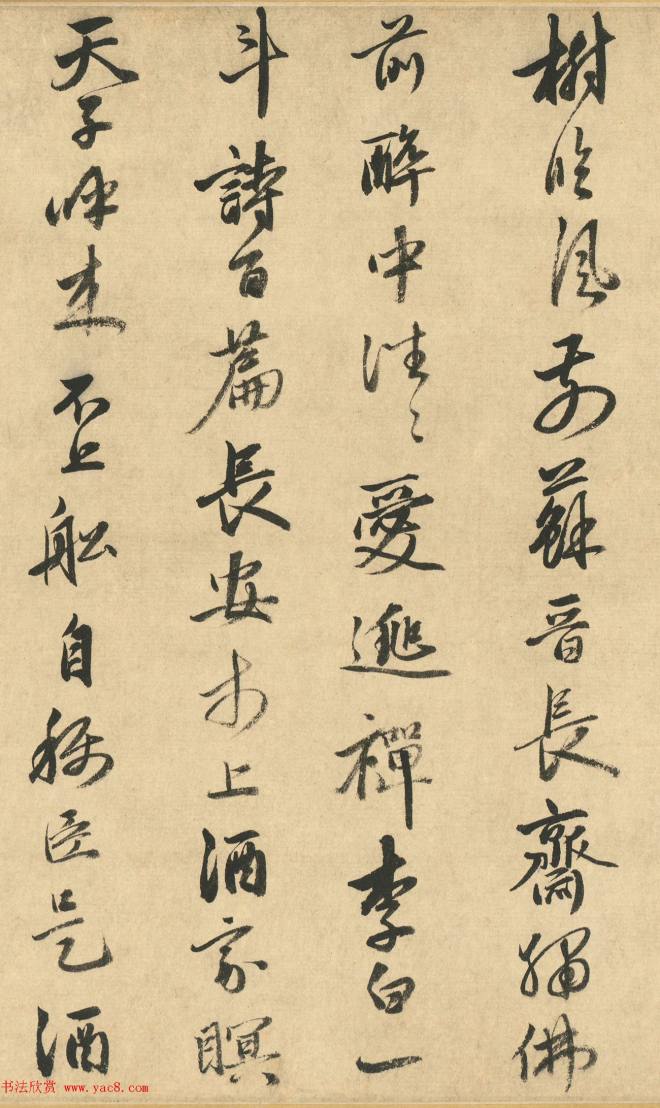 樹臨風前蘇晉長齋繡佛
前醉中往〻愛逃禪李白一
斗詩百篇長安市上酒家瞑
天子呼来不上舩自稱臣是酒
书法欣赏 www.yac8.com